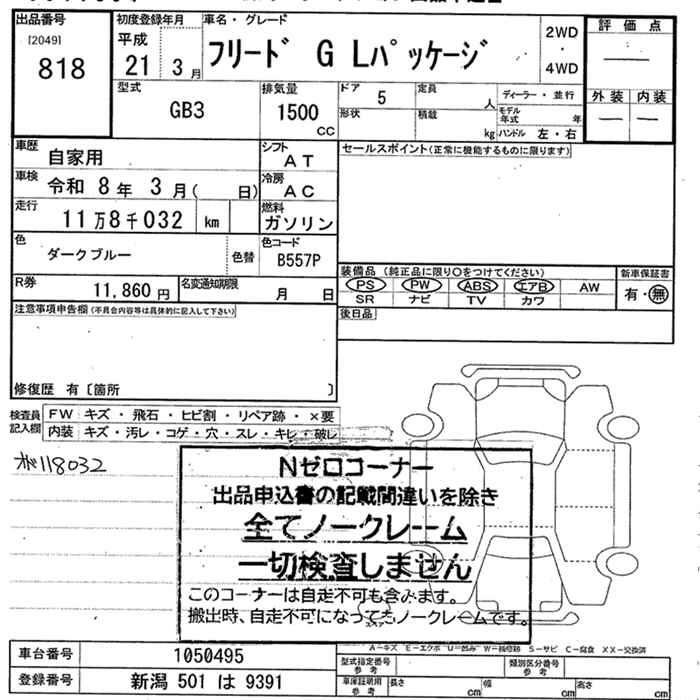 出品番号
[2049]
818
初度登録年月
平成
21 3月
車名・グレード
フリード G Lパッケージ
2WD
・
4WD
評価点
外装 内装
型式
GB3
排気量
1500
cc
ドア
5
定員
人
形状
積載
kg
ディーラー・並行
モデル年式 年
ハンドル 左・右
車歴
自家用
シフト
AT
車検
令和 8年 3月( 日)
冷房
AC
走行
11万8千032 km
燃料
ガソリン
色
ダークブルー
色替
色コード
B557P
R券
11,860円
名変通知期限
月 日
セールスポイント(正常に機能するものに限ります)
装備品(純正品に限り○をつけてください)
PS PW ABS エアB AW
SR ナビ TV カワ
新車保証書
有・無
後日品
注意事項申告欄(不具合内容等は具体的に記入して下さい)
修復歴 有〔箇所 〕
検査員
記入欄
FW キズ・飛石・ヒビ割・リペア跡・×要
内装 キズ・汚レ・コゲ・穴・スレ・キレ・破レ
118032
Nゼロコーナー
出品申込書の記載間違いを除き
全てノークレーム
一切検査しません
このコーナーは自走不可も含みます。
搬出時、自走不可になってもノークレームです。
A-キズ E-エクボ U-凹み W-補修跡 S-サビ C-腐食 XX-交換済
車台番号 1050495
登録番号 新潟 501 は 9391
型式指定番号
参考
類別区分番号
参考
車庫証明用
参考
長さ cm 幅 cm 高さ cm